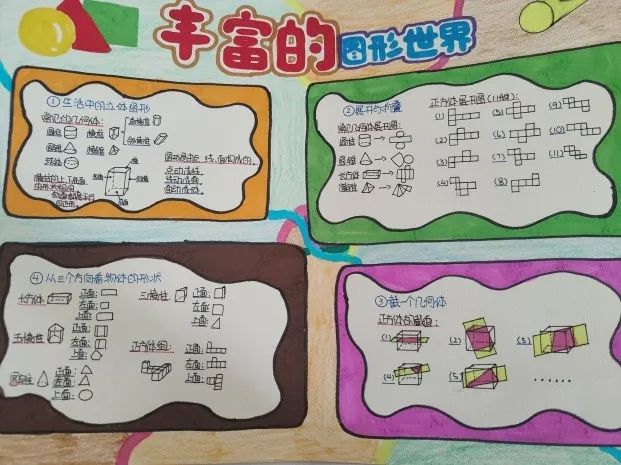 丰富的图形世界
①生活中的立体图形
常见的几何体:
圆柱 棱柱 直棱柱
斜棱柱
圆锥 棱锥
球体
图形是由点、线、面构成的。
点动成线
线动成面
面动成体
②展开与折叠
常见几何体展开图:
圆柱
圆锥
长方体
棱锥
正方体展开图(11种):
(1) (5) (9)
(2) (6) (10)
(3) (7) (11)
(4) (8)
④从三个方向看物体的形状
长方体 正面: 三棱柱 正面:
左面: 左面:
上面: 上面:
五棱柱 正面:
左面: 正方体组: 正面:
上面: 左面:
圆锥 正面: 上面:
左面:
上面:
③截一个几何体
正方体的截面:
(1) (2) (3)
(4) (5) ……